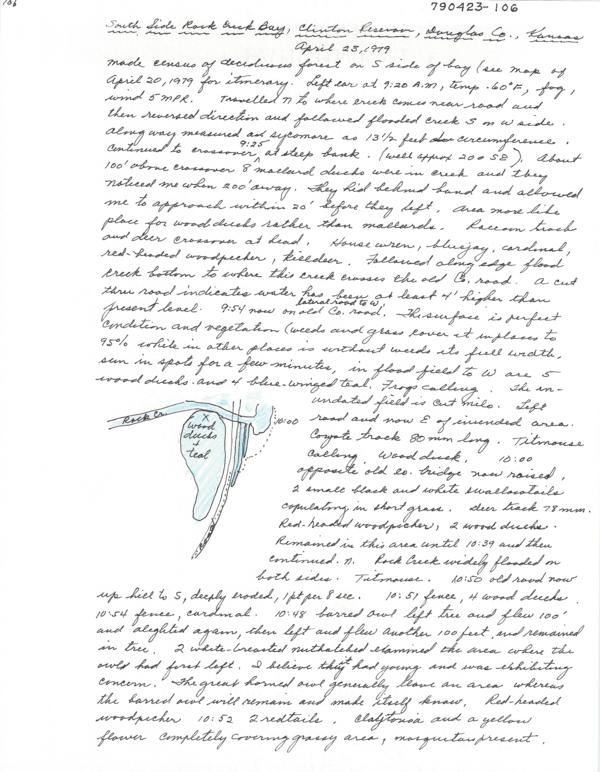 106
790423-106
South Side Rock Creek Bay, Clinton Reservoir, Douglas Co., Kansas
April 23, 1979
made census of deciduous forest on S side of bay (see map of
April 20, 1979 for itinerary. Left car at 9:20 A.M, temp. 60°F, fog,
wind 5 MPR. Travelled N to where creek comes near road and
then reversed direction and followed flooded creek S on W side.
Along way measured old sycomore as 13 1/2 feet circumference.
Continued to crossover 9:25 at steep bank. (well approx 200 SE). About
100' above crossover 8 mallard ducks were in creek and they
noticed me when 200' away. They hid behind bend and allowed
me to approach within 20' before they left. Area more like
place for wood ducks rather than mallards. Raccoon track
and deer crossover at head. House wren, bluejay, cardinal,
red-headed woodpecker, killdeer. Followed along edge flood
creek bottom to where this creek crosses the old Co. road. A cut
thru road indicates water has been at least 4' higher than
present level. 9:54 now on old Co. road. lateral road to W, This surface is perfect
condition and vegetation (weeds and grass cover it in places to
95% while in other places is without weeds its full width,
sun in spots for a few minutes, in flood field to W are 5
wood ducks and 4 blue-winged teal. Frogs calling. The in-
undated field is cut milo. Left
road and now E of inunded area.
Coyote track 80 mm long. Titmouse
calling. Wood duck. 10:00
opposite old co. bridge now raised,
2 small black and white swallowtails
copulating in short grass. Deer track 78 mm.
Red-headed woodpecker, 2 wood ducks.
Remained in this area until 10:39 and then
continued N. Rock Creek widely flooded on
both sides. Titmouse. 10:50 old road now
Rock Cr.
X
wood
ducks
+
teal
10:00
up hill to S, deeply eroded, 1 pt per 8 sec. 10:51 fence, 4 wood ducks
10:54 fence, cardinal. 10:48 barred owl left tree and flew 100'
and alighted again, then left and flew another 100 feet, and remained
in tree. 2 white-breasted nuthatches examined the area where the
owl had first left. I believe they had young and was exhibiting
concern. The great horned owl generally leave an area whereas
the barred owl will remain and make itself know. Red-headed
woodpecker 10:52 2 redtails. Claytonia and a yellow
flower completely covering grassy area, mosquitoes present.